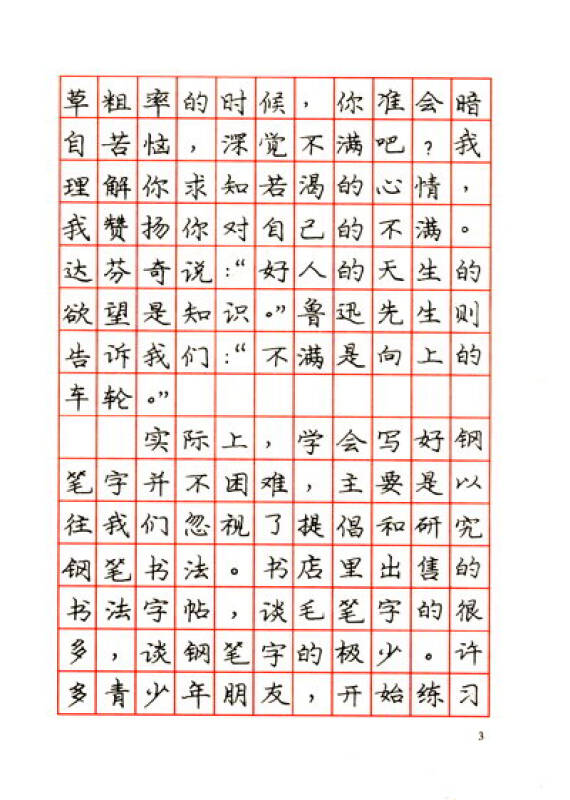 草粗率的时候，你准会暗
自苦恼，深觉不满吧？我
理解你求知若渴的心情，
我赞扬你对自己的不满。
达芬奇说：“好人的天生的
欲望是知识。”鲁迅先生则
告诉我们：“不满是向上的
车轮。”
实际上，学会写好钢
笔字并不困难，主要是以
往我们忽视了提倡和研究
钢笔书法。书店里出售的
书法字帖，谈毛笔字的很
多，谈钢笔字的极少。许
多青少年朋友，开始练习
3